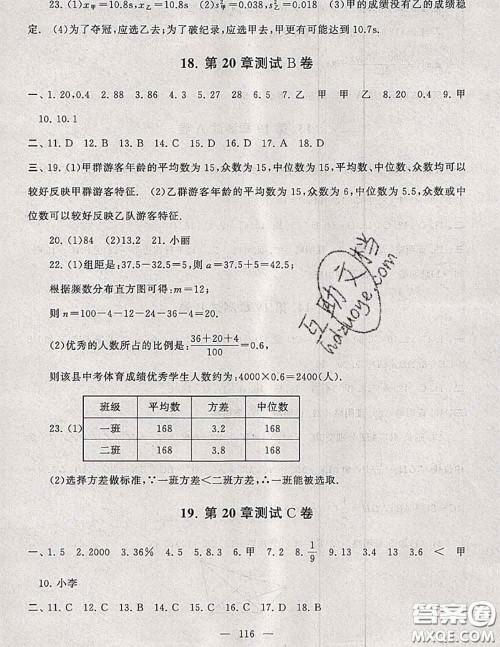 23. (1)x̄甲=10.8s, x̄乙=10.8s (2)s²甲=0.04, s²乙=0.02 (3)甲的成绩没有乙的成绩稳
定. (4)为了夺冠,应选乙去;为了破纪录,应选甲去,甲更有可能达到10.7s.
18. 第20章测试B卷
一、1. 20,0.4 2. 88 3. 86 4. 5 5. 第二组 6. 100,15 7. 乙 甲 甲 乙 8. 20 0.4 9. 甲
10. 10.1
二、11. D 12. B 13. B 14. D 15. D 16. C 17. D 18. D
三、19. (1)甲群游客年龄的平均数为15,众数为15,中位数为15,平均数、中位数、众数均可以
较好反映甲群游客特征. (2)乙群游客年龄的平均数为15,众数为6,中位数为5.5,众数或中
位数可以较好反映乙队游客特征.
20. (1)84 (2)13.2 21. 小丽
22. (1)组距是:37.5-32.5=5,则a=37.5+5=42.5;
根据频数分布直方图可得:m=12;
则n=100-4-12-24-36-4=20.
(2)优秀的人数所占的比例是:(36+20+4)/100=0.6,
则该县中考体育成绩优秀学生人数约为:4000×0.6=2400(人).
23. (1)
班级 平均数 方差 中位数
一班 168 3.2 168
二班 168 3.8 168
(2)选择方差做标准,∵一班方差<二班方差,∴一班能被选取.
19. 第20章测试C卷
一、1. 5 2. 2000 3. 36% 4. 5 5. 8.3 6. 甲 7. 2 8. 1/9 9. 13 3.4 13 3.6 < 甲
10. 小李
二、11. C 12. D 13. C 14. D 15. A 16. C 17. B 18. A
— 116 —
互助文档
hdzuoye.com
作业答案圈
MXQE.COM